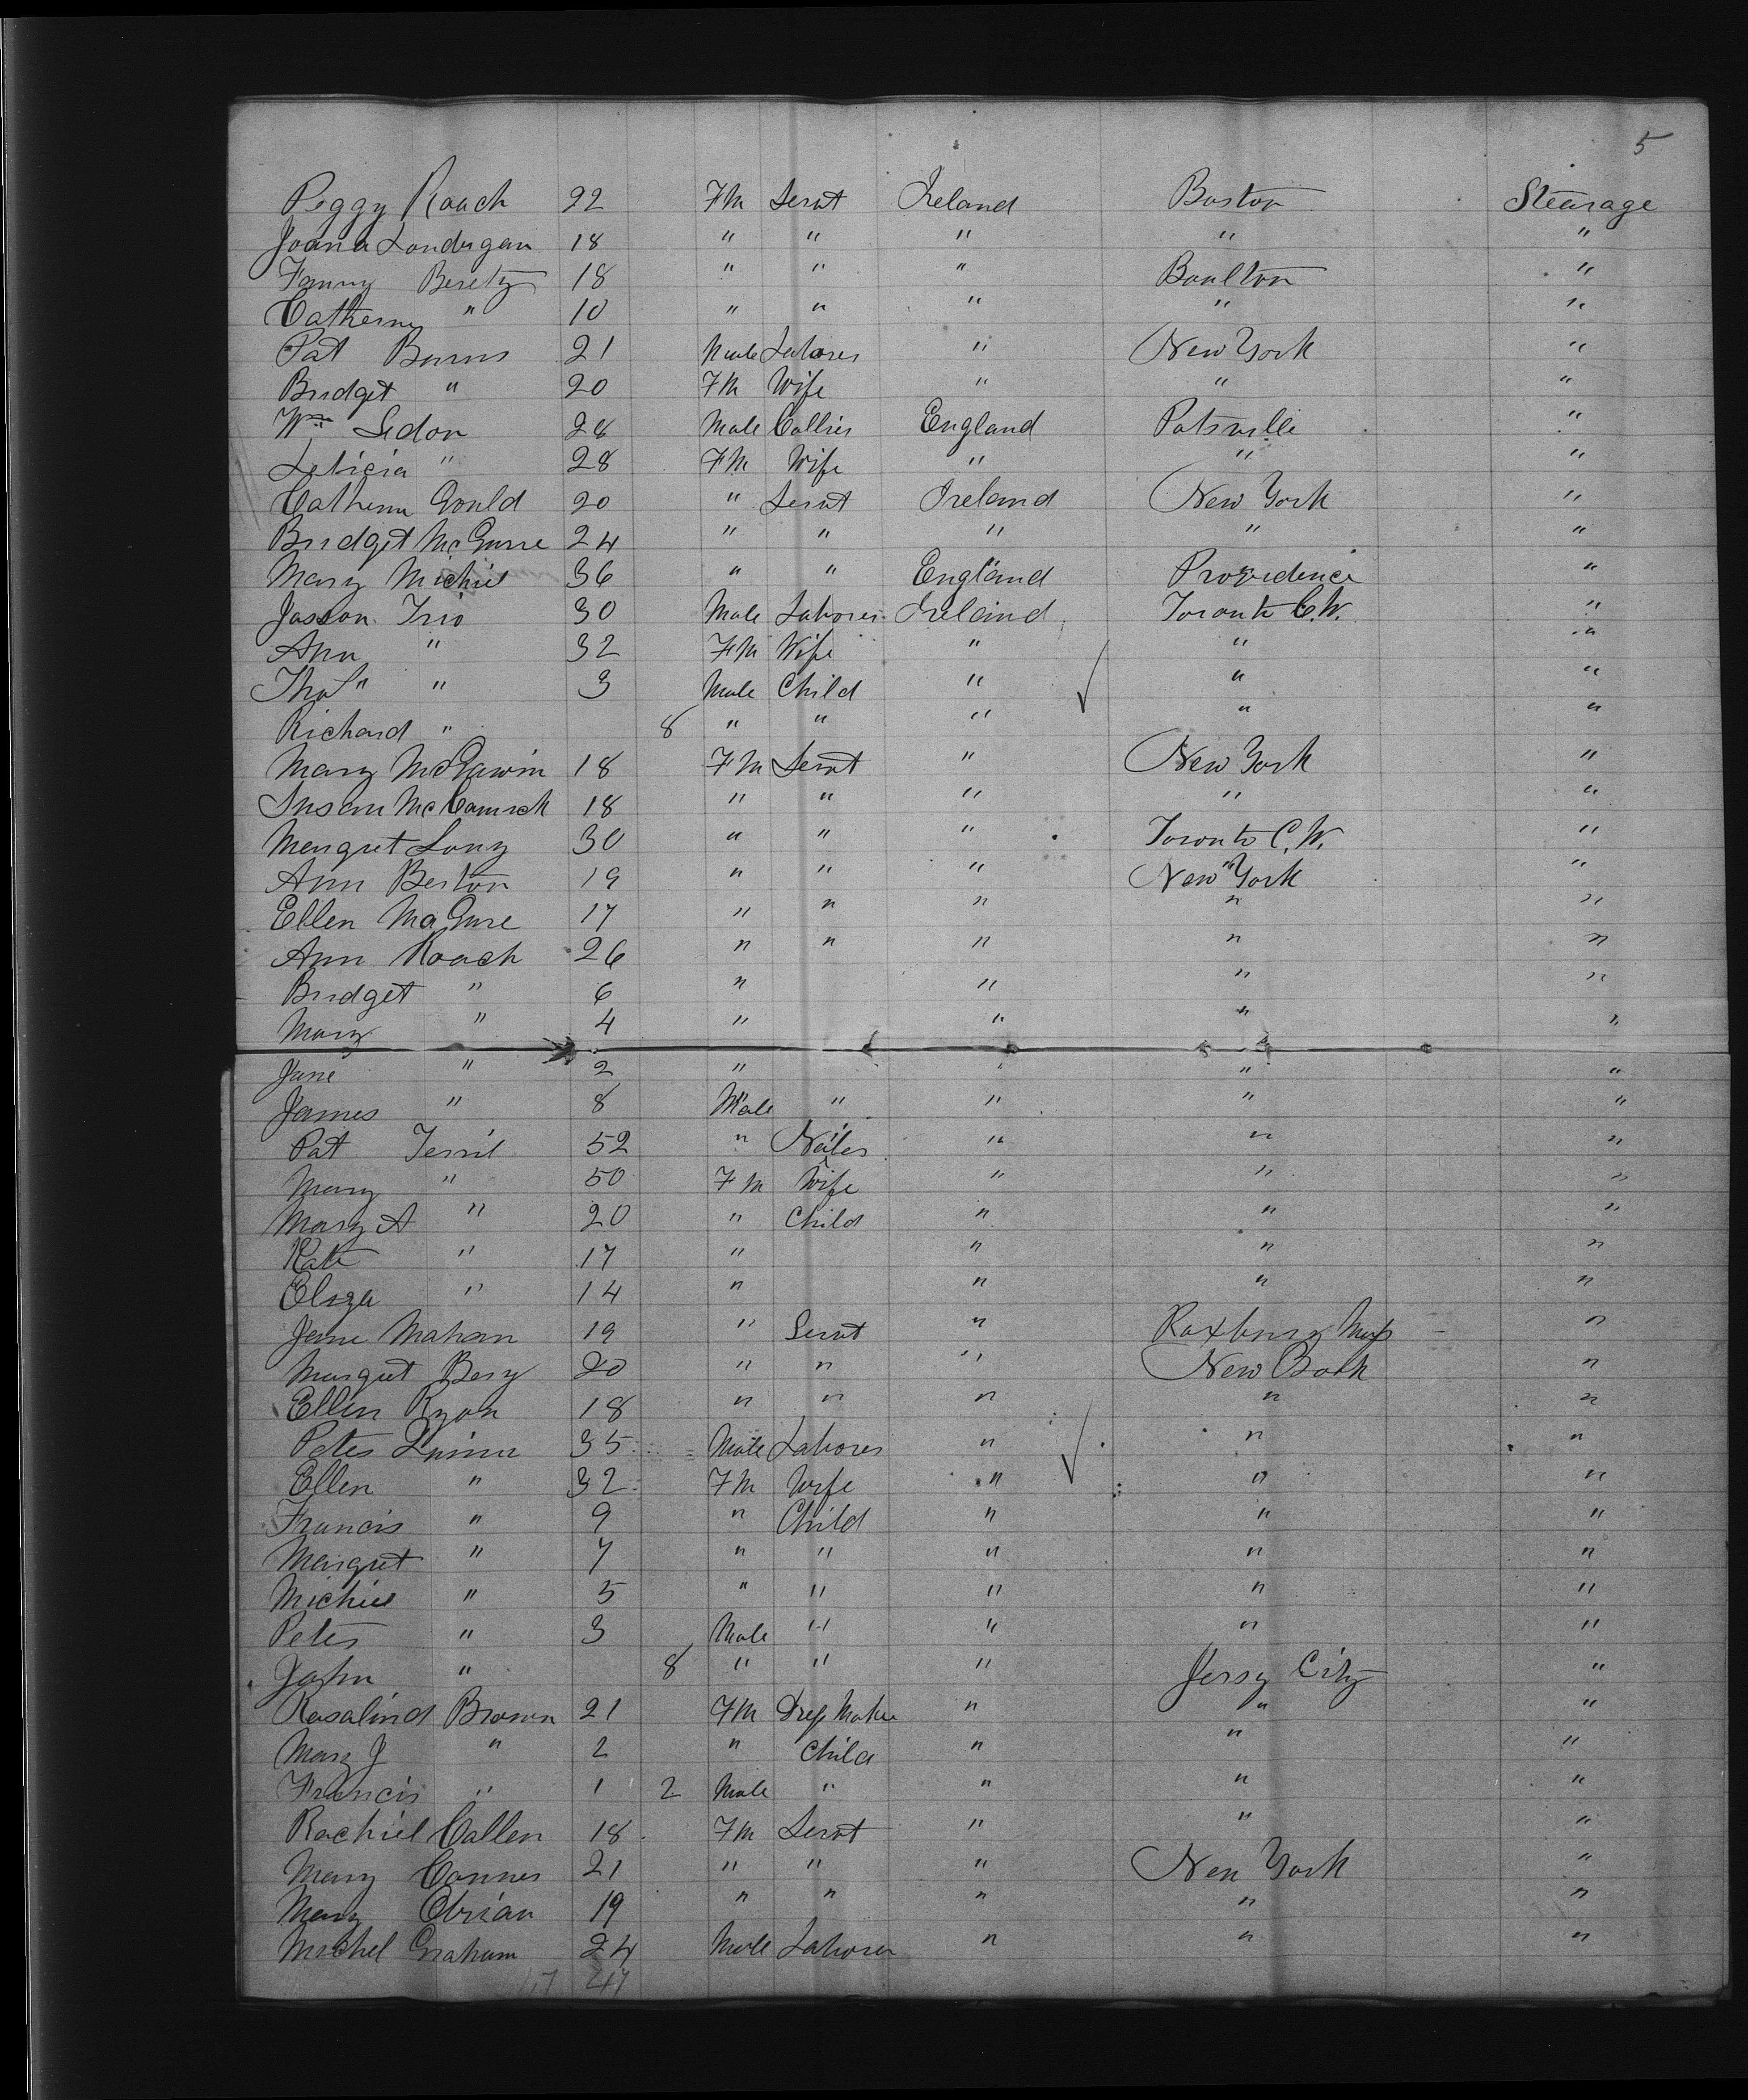 5
Peggy Roach 22 Fm Servt Ireland Boston Stearage
Joana Londergan 18 " " " " "
Fanny Berety 18 " " " Boulton "
Catherine " 10 " " " " "
Pat Burns 21 Male Laborer " New York "
Bridget " 20 Fm Wife " " "
Wm Sedon 28 Male Collier England Potsville "
Leticia " 28 Fm Wife " " "
Catherine Gould 20 " Servt Ireland New York "
Bridget McGuire 24 " " " " "
Mary Michiel 36 " " England Providence "
Jasson Trio 30 Male Laborer Ireland Toronto C.W. "
Ann " 32 Fm Wife " " "
Thos " 3 Male Child " " "
Richard " 8 " " " " "
Mary McGawin 18 Fm Servt " New York "
Susan McCormick 18 " " " " "
Margret Long 30 " " " Toronto C.W. "
Ann Berton 19 " " " New York "
Ellen MaGuire 17 " " " " "
Ann Roach 26 " " " " "
Bridget " 6 " " " "
Mary " 4 " " " "
Jane " 2 " " " "
James " 8 Male " " " "
Pat Terril 52 " Nailer " " "
Mary " 50 Fm Wife " " "
Mary A " 20 " Child " " "
Kate " 17 " " " "
Eliza " 14 " " " "
Jane Mahan 19 " Servt " Roxbury Mass "
Margret Bery 20 " " " New York "
Ellen Ryan 18 " " " " "
Peter 35 Male Laborer " " "
Ellen " 32 Fm Wife " " "
Francis " 9 " Child " " "
Margret " 7 " " " " "
Michiel " 5 " " " " "
Peter " 3 Male " " " "
John " 8 " " " Jersy City "
Rosalind Brown 21 Fm Dress Maker " " "
Mary J " 2 " Child " " "
Francis " 1 2 Male " " " "
Rachiel Callen 18 Fm Servt " " "
Mary Conner 21 " " " New York "
Mary Obrian 19 " " " " "
Michel Graham 24 Male Laborer " " "
47 47